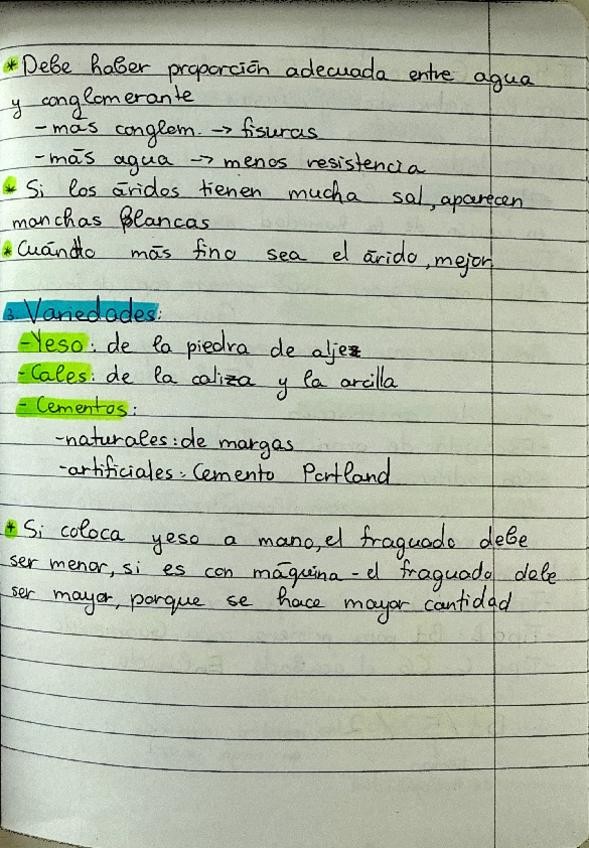 * Debe haber proporción adecuada entre agua
y conglomerante
- más conglom. → fisuras
- más agua → menos resistencia
* Si los áridos tienen mucha sal, aparecen
manchas blancas
* Cuándo más fino sea el árido, mejor
3. Variedades:
- Yeso: de la piedra de aljez
- Cales: de la caliza y la arcilla
- Cementos:
- naturales: de margas
- artificiales: Cemento Portland
* Si coloca yeso a mano, el fraguado debe
ser menor, si es con máquina - el fraguado debe
ser mayor, porque se hace mayor cantidad